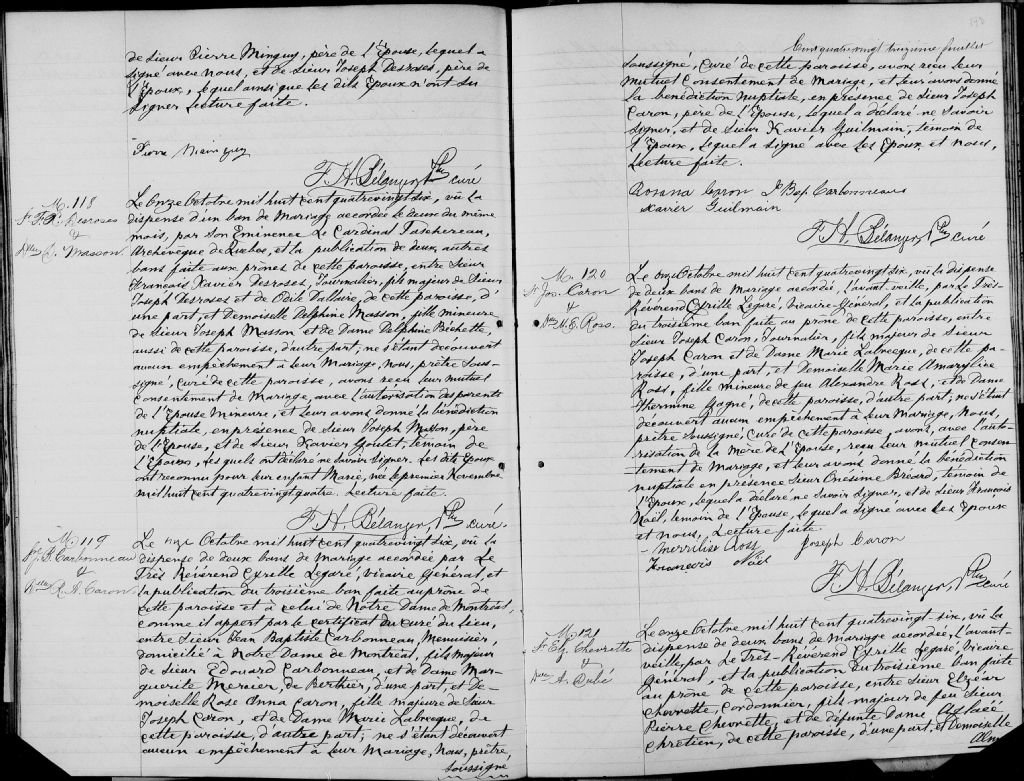 de Sieur Pierre Minguy, père de l'Epouse, lequel a
signé avec nous, et de Sieur Joseph Desroses, père de
l'Epoux, lequel ainsi que les dits Epoux n'ont su
signer Lecture faite.
Pierre Mainguy
F. H. Bélanger, Ptre curé
M. 118
Sr F. X. Desroses
&
Dlle D. Masson.
Le onze Octobre mil huit cent quatrevingt six, vû la
dispense d'un ban de Mariage accordée le deux du même
mois, par Son Eminence Le Cardinal Taschereau,
Archevêque de Québec, et la publication de deux autres
bans faite aux prônes de cette paroisse, entre Sieur
François Xavier Desroses, Journalier, fils majeur de Sieur
Joseph Desroses et de Odile Dallaire, de cette paroisse, d'
une part, et Demoiselle Delphine Masson, fille mineure
de Sieur Joseph Masson et de Dame Delphine Béchette,
aussi de cette paroisse, d'autre part; ne s'étant découvert
aucun empêchement à leur Mariage, Nous, prêtre Sous-
signé, Curé de cette paroisse, avons reçu leur mutuel
consentement de Mariage, avec l'autorisation des parents
de l'Epouse Mineure, et leur avons donné la bénédiction
nuptiale, en présence de Sieur Joseph Masson, père
de l'Epouse, et de Sieur Xavier Goulet, témoin de
l'Epoux, lesquels ont déclaré ne savoir signer. Les dits Epoux
ont reconnu pour leur enfant Marie, née le premier Novembre
mil huit cent quatrevingt quatre. Lecture faite.
F. H. Bélanger, Ptre curé.
M. 119
Sr J. B. Carbonneau
&
Dlle R. A. Caron.
Le onze Octobre mil huit cent quatrevingt six, vû la
dispense de deux bans de mariage accordée par Le
Très Révérend Cyrille Legaré, vicaire Général, et
la publication du troisième ban faite au prône de
cette paroisse et à celui de Notre Dame de Montréal,
comme il appert par le certificat du curé du lieu,
entre Sieur Jean Baptiste Carbonneau, Menuisier,
domicilié à Notre Dame de Montréal, fils majeur
de Sieur Edouard Carbonneau, et de Dame Mar-
guerite Mercier, de Berthier, d'une part, et De-
moiselle Rose Anna Caron, fille majeure de Sieur
Joseph Caron, et de Dame Marie Labrecque, de
cette paroisse, d'autre part; ne s'étant découvert
aucun empêchement à leur Mariage, Nous, prêtre
soussigné
Cent quatre vingt treizième feuillet
soussigné, Curé de cette paroisse, avons reçu leur
mutuel consentement de Mariage, et leur avons donné
la bénédiction nuptiale, en présence de Sieur Joseph
Caron, père de l'Epouse, lequel a déclaré ne savoir
signer, et de Sieur Xavier Guilmain, témoin de
l'Epoux, lequel a signé avec les Epoux et nous,
Lecture faite.
Rosana Caron Je Bap. Carbonneau
Xavier Guilmain
F. H. Bélanger, Ptre curé
M. 120
Sr Jos. Caron
&
Dlle M. E. Ross.
Le onze Octobre mil huit cent quatrevingt six, vû la dispense
de deux bans de Mariage accordée, l'avant-veille, par Le Très-
Révérend Cyrille Legaré, Vicaire-Général, et la publication
du troisième ban faite au prône de cette paroisse, entre
Sieur Joseph Caron, Journalier, fils majeur de Sieur
Joseph Caron et de Dame Marie Labrecque, de cette pa-
roisse, d'une part, et Demoiselle Marie Amarylise
Ross, fille mineure de feu Alexandre Ross, et de Dame
Hermine Gagné, de cette paroisse, d'autre part; ne s'étant
découvert aucun empêchement à leur Mariage, Nous,
prêtre soussigné, curé de cette paroisse, avons, avec l'auto-
risation de la Mère de l'Epouse, reçu leur mutuel consen-
tement de Mariage, et leur avons donné la bénédiction
nuptiale en présence Sieur Onésime Breard, témoin de
l'Epoux, lequel a déclaré ne savoir signer, et de Sieur François
Noël, témoin de l'Epouse, lequel a signé avec les Epoux
et nous, Lecture faite.
Merrilise Ross Joseph Caron
François Noël
F. H. Bélanger, Ptre curé
M. 121
Sr Elz. Chevrette
&
Dlle A. Dubé
Le onze Octobre mil huit cent quatrevingt-six, vû la
dispense de deux bans de mariage accordée, l'avant-
veille, par Le Très-Révérend Cyrille Legaré, vicaire
Général, et la publication du troisième ban faite
au prône de cette paroisse, entre Sieur Elzéar
Chevrette, Cordonnier, fils majeur de feu Sieur
Pierre Chevrette, et de défunte Dame Aglaée
Chrétien, de cette paroisse, d'une part, et Demoiselle